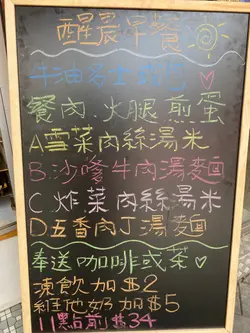 醒晨早餐
牛油名士或巴
餐肉、火腿、煎蛋
A雪菜肉絲湯米
B.沙嗲牛肉湯麵
C 炸菜肉絲湯米
D五香肉丁湯麵
奉送咖啡或茶
凍飲加$2
紅地奶加$5
11點前$34